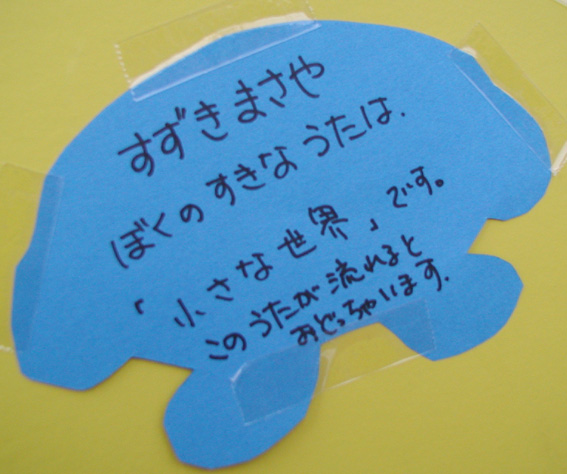 すずきまさや
ぼくのすきなうたは.
「小さな世界」です。
このうたが流れると
おどっちゃいます.